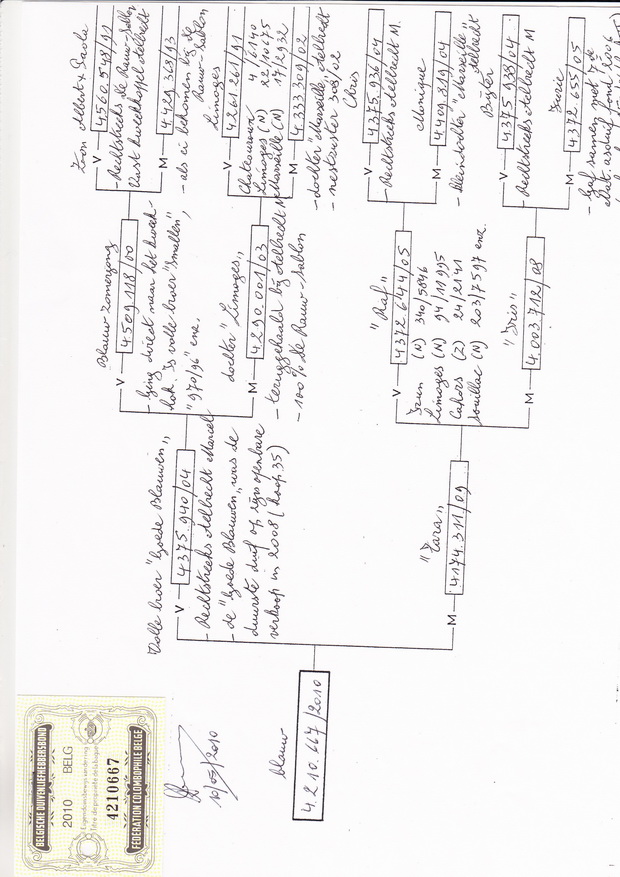 BELGISCHE DUIVENLIEFHEBBERSBOND
2010 BELG
Eigendomsbewijs van den ring
Titre de propriété de la bague
4210667
FEDERATION COLOMBOPHILE BELGE
10/05/2010
blauw
4.210.667/2010
Volle broer "Goede Blauwen"
V 4375.940/04
- Rechtstreeks Aelbrecht Marcel
- de "Goede Blauwen" was de
duurste duif op zijn openbare
verkoop in 2008 (koop 35)
"Zara"
M 4174.311/09
Blauw Zomerjong
V 4509.118/00
- ging direct naar het kweek-
hok. Is volle broer "Smallen"
"970/96" enz.
dochter "Limoges"
M 4290.001/03
- teruggehaald bij Aelbrecht M
- 100% De Rauw-Sablon
"Raf"
V 4372.644/05
Irun (N) 340/5846
Limoges (N) 94/11995
Cahors (Z) 24/2141
Souillac (N) 203/7597 enz.
"Dries"
M 4.003.712/08
Zoon Albert x Paola
V 4560.548/91
- Rechtstreeks De Rauw-Sablon
Vast kweekkoppel Aelbrecht
M 4429.368/93
- als ei bekomen bij De
Rauw-Sablon
Limoges
V 4261.261/91
Chateauroux 4/6140
Limoges (N) 22/10675
Marseille (N) 17/2932
M 4.333.309/02
- dochter "Marseille" Aelbrecht
- nestzuster 308/02
Chris
V 4375.936/04
- Rechtstreeks Aelbrecht M.
Monique
M 4409.819/04
- kleindochter "Marseille"
Aelbrecht
V 4375.938/04
- Rechtstreeks Aelbrecht M
M 4372.655/05
- Gaf samen met 7 de